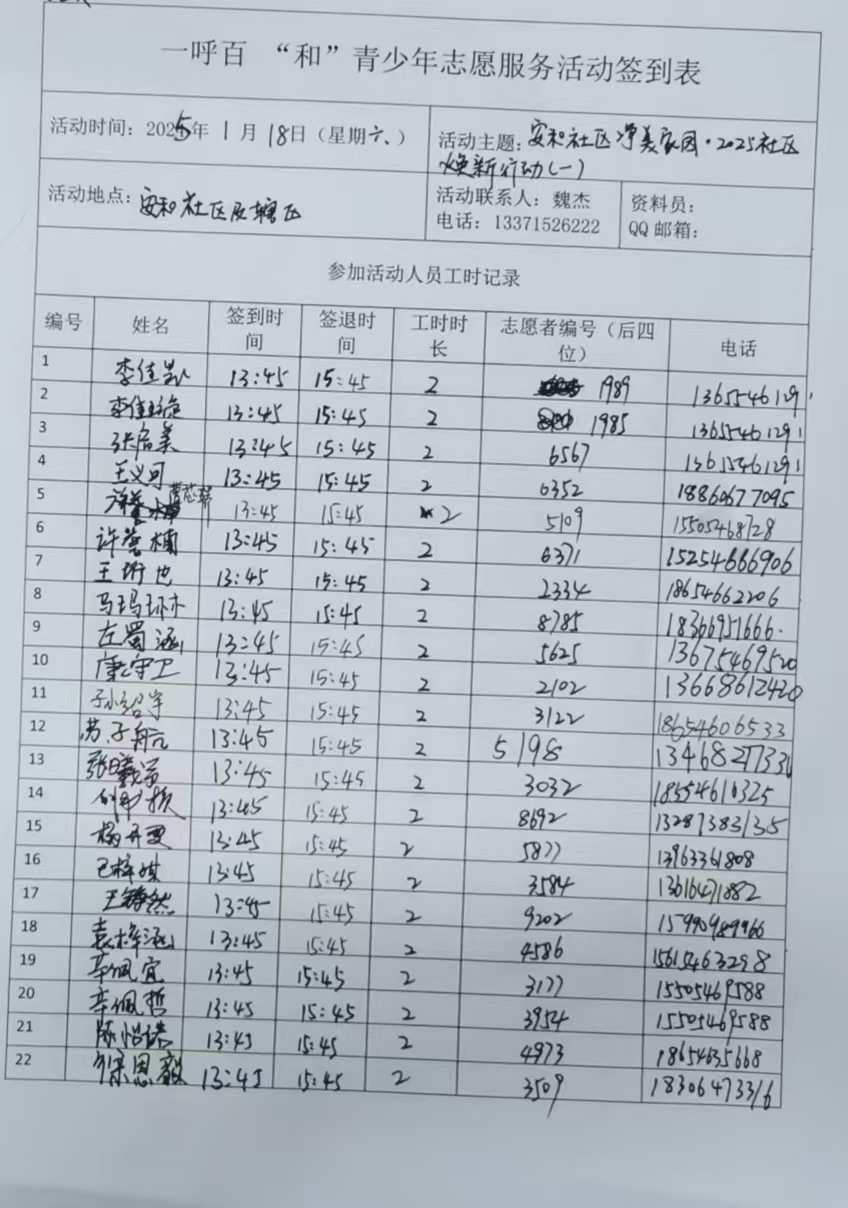 一呼百 “和”青少年志愿服务活动签到表
活动时间：2025年 1月 18日（星期六、）
活动主题：安和社区净美家园·2025社区
焕新行动(一)
活动地点：安和社区及辖区
活动联系人：魏杰
电话：13371526222
资料员：
QQ邮箱：
参加活动人员工时记录
编号 姓名 签到时间 签退时间 工时时长 志愿者编号（后四位） 电话
1 李佳 13:45 15:45 2 1989 13655461291
2 李佳 13:45 15:45 2 1985 13655461291
3 张启美 13:45 15:45 2 6567 13615461291
4 王义可 13:45 15:45 2 6352 18860677095
5 13:45 15:45 2 5109 15505468728
6 许 楠 13:45 15:45 2 6371 15254666906
7 王 也 13:45 15:45 2 2334 18654662206
8 13:45 15:45 2 8785 18366951666
9 左蜀涵 13:45 15:45 2 5625 13675469520
10 康守卫 13:45 15:45 2 2102 13668612420
11 13:45 15:45 2 3122 18654606533
12 苏子航 13:45 15:45 2 5198
13 张曦 13:45 15:45 2 3032 18554610325
14 13:45 15:45 2 8692 13287383135
15 杨 13:45 15:45 2 5877 13963361808
16 巴梓琪 13:45 15:45 2 3584 13616471882
17 王 然 13:45 15:45 2 9202
18 袁梓涵 13:45 15:45 2 4586 15615463298
19 辛佩宜 13:45 15:45 2 3177 15505469588
20 辛佩哲 13:45 15:45 2 3954 15505469588
21 陈怡诺 13:45 15:45 2 4973 18654635668
22 徐思毅 13:45 15:45 2 3509 18306473316